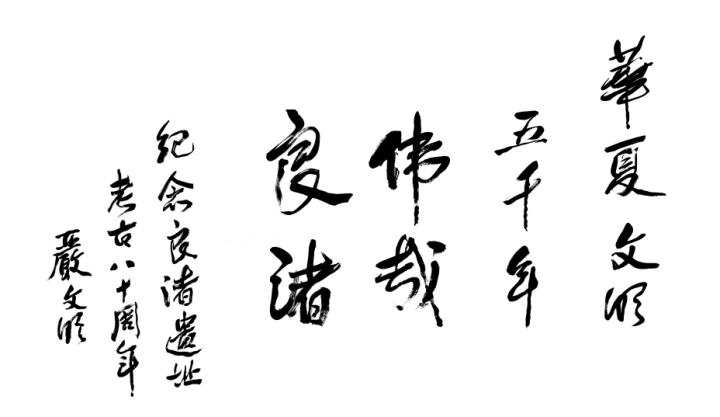 華夏文明
五千年
伟哉
良渚
纪念良渚遗址
考古八十周年
嚴文明